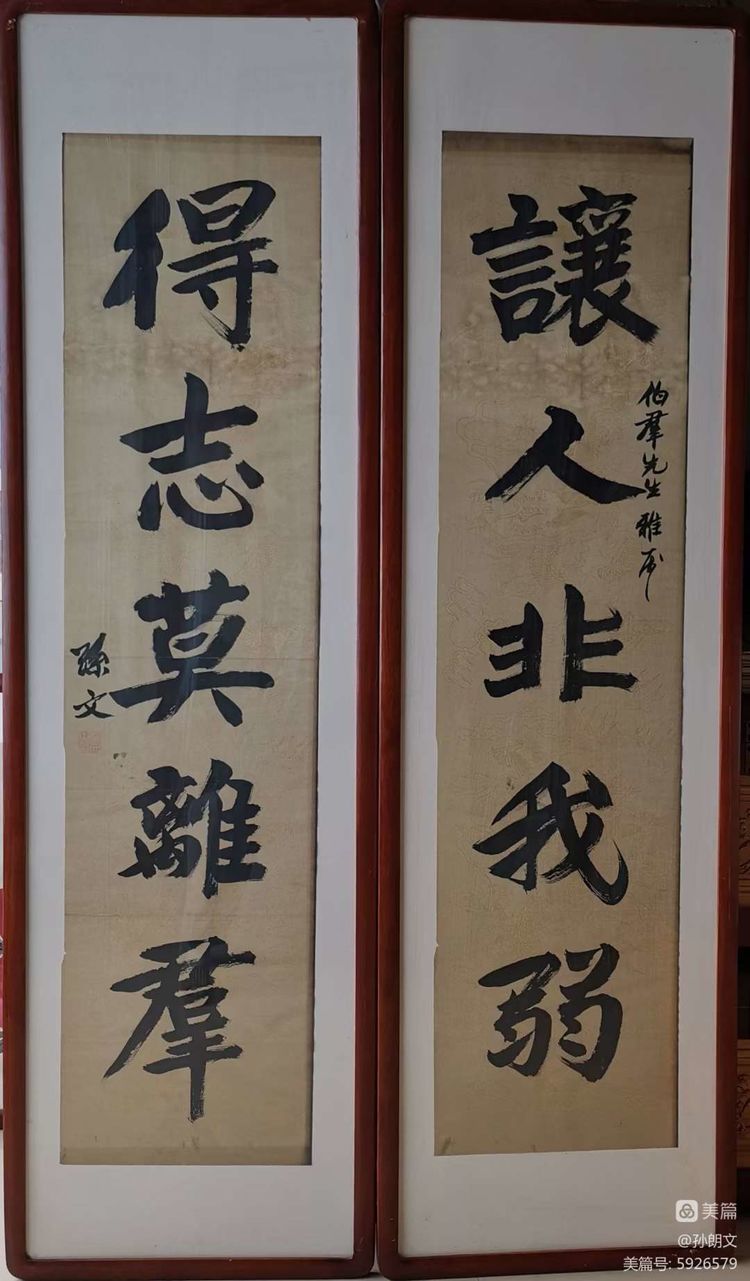 讓人非我弱
伯羣先生雅屬
得志莫離羣
孫文
美篇
@孙朗文
美篇号: 5926579